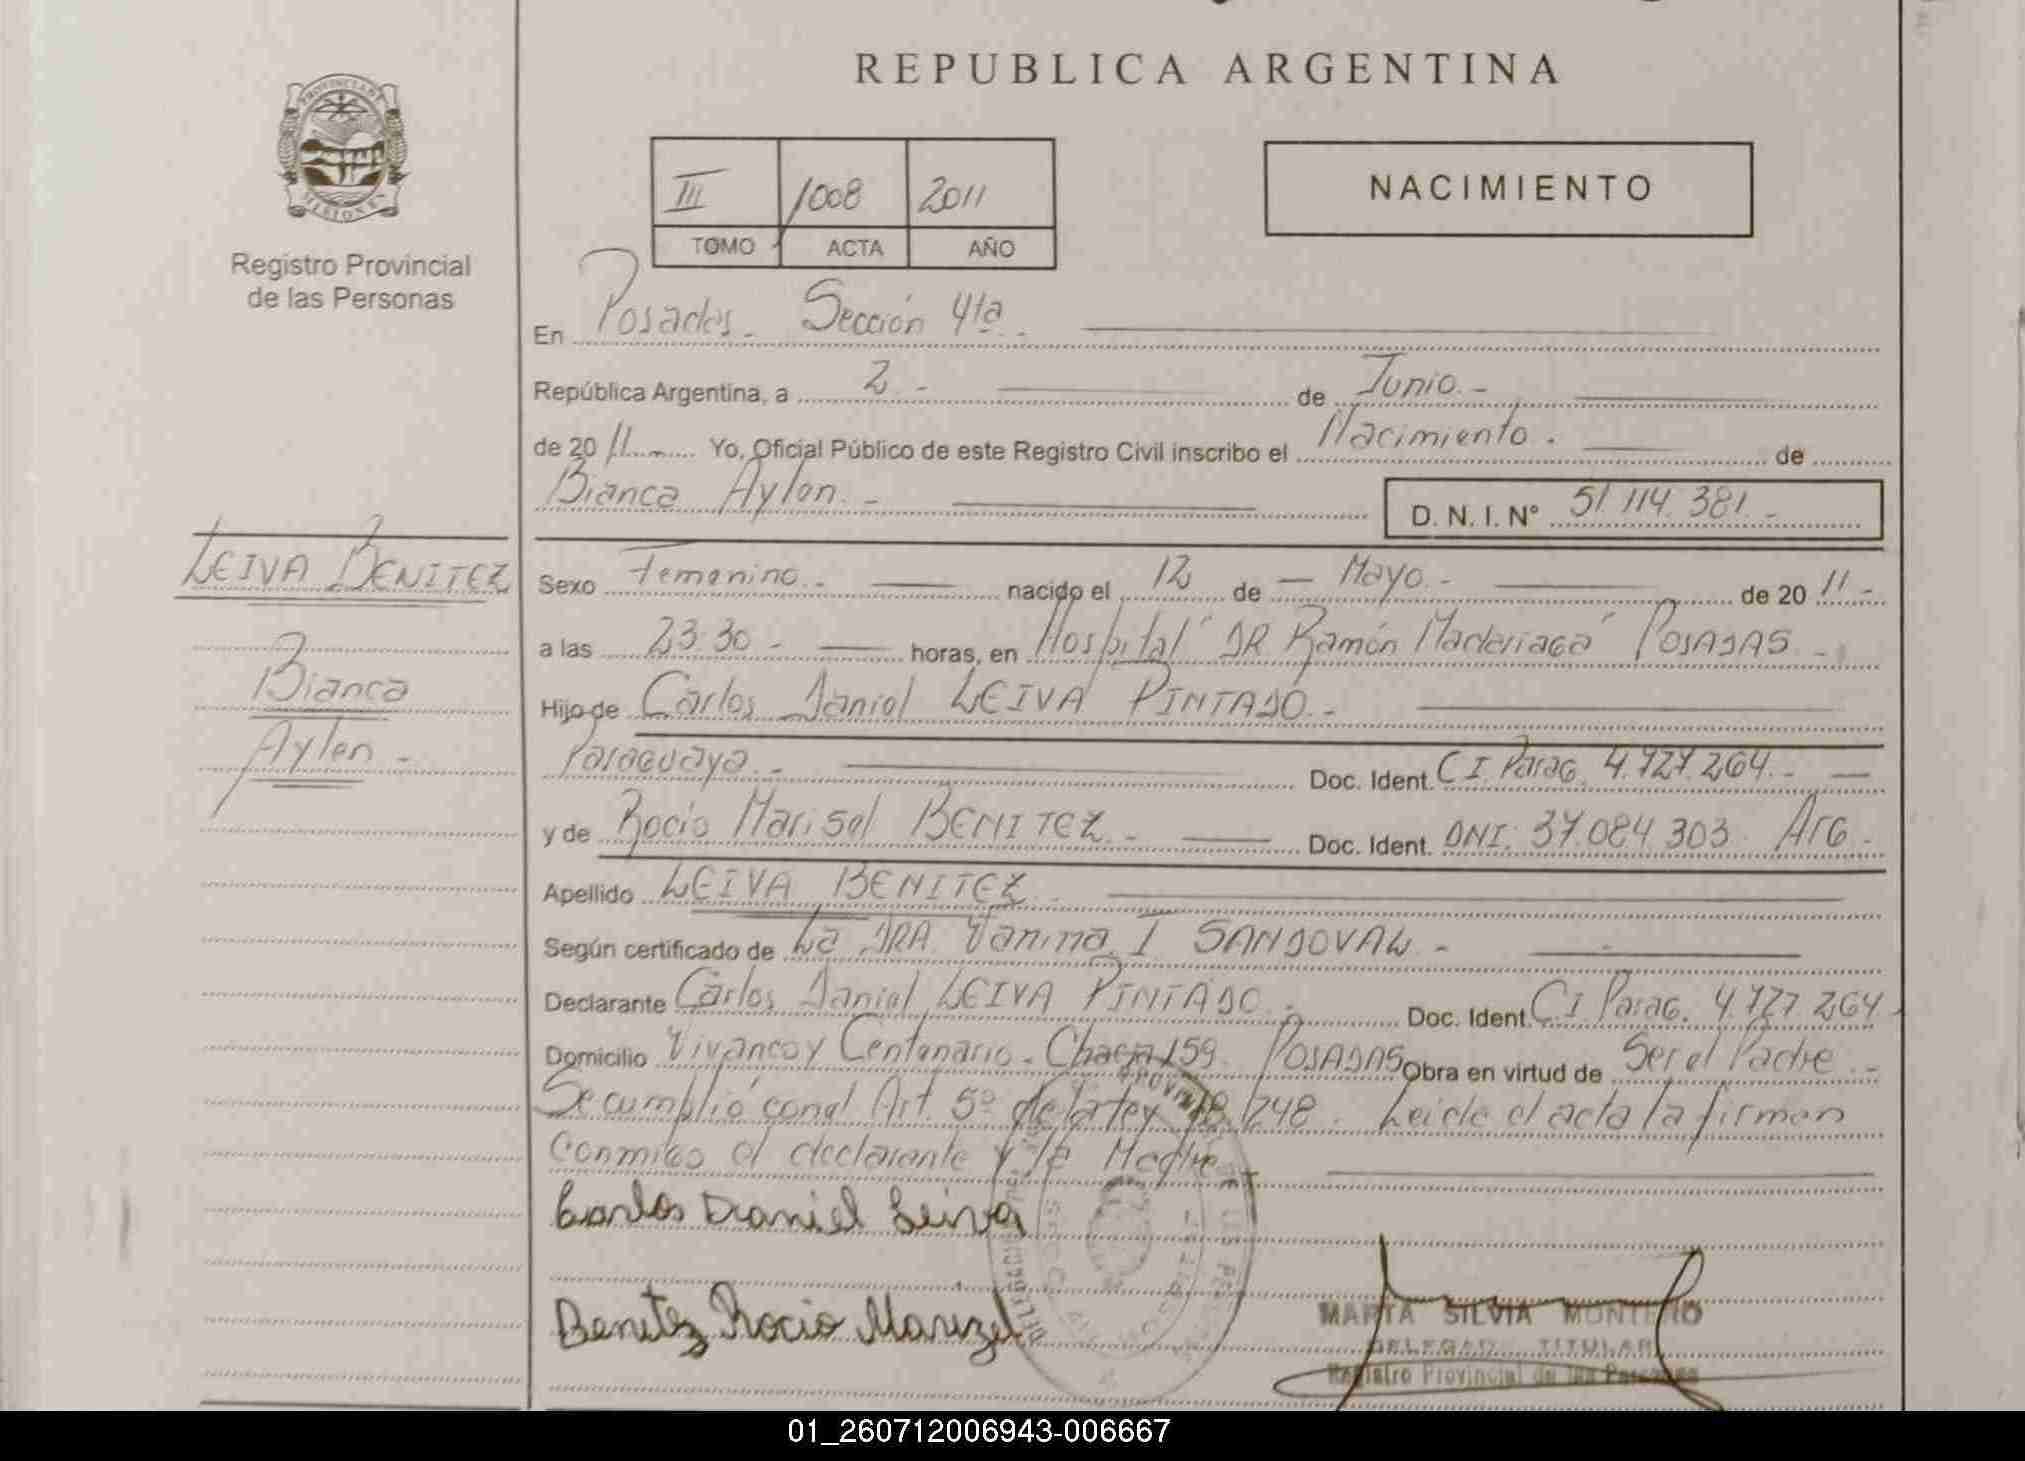 REPUBLICA ARGENTINA
PROVINCIA DE MISIONES
Registro Provincial
de las Personas
III 1008 2011
TOMO ACTA AÑO
NACIMIENTO
En Posadas - Sección 4ta -
República Argentina, a 2 - de Junio -
de 20 11 Yo, Oficial Público de este Registro Civil inscribo el Nacimiento . de
Bianca Aylen - D. N. I. Nº 51.114.381 -
LEIVA BENITEZ
Bianca
Aylen -
Sexo Femenino - nacido el 12 de - Mayo - de 20 11 -
a las 23.30 - horas, en Hospital "DR Ramón Madariaga" POSADAS -
Hijo de Carlos Daniel LEIVA PINTADO -
Paraguayo - Doc. Ident. C I. Parag. 4.727.264 -
y de Rocio Marisel BENITEZ - Doc. Ident. DNI: 37.084.303 Arg -
Apellido LEIVA BENITEZ -
Según certificado de La DRA Vanina I SANDOVAL -
Declarante Carlos Daniel LEIVA PINTADO - Doc. Ident. C I Parag. 4.727.264 -
Domicilio Vivanco y Centenario - Chacra 159 - POSADAS Obra en virtud de Ser el Padre -
Se cumplió con el Art. 5º de la ley 18.248 . Leida el acta la firman
conmigo el declarante y la Madre -
Carlos Daniel Leiva
Benitez Rocio Marizel
MARTA SILVIA
DELEGADA TITULAR
Registro Provincial de las Personas
01_260712006943-006667